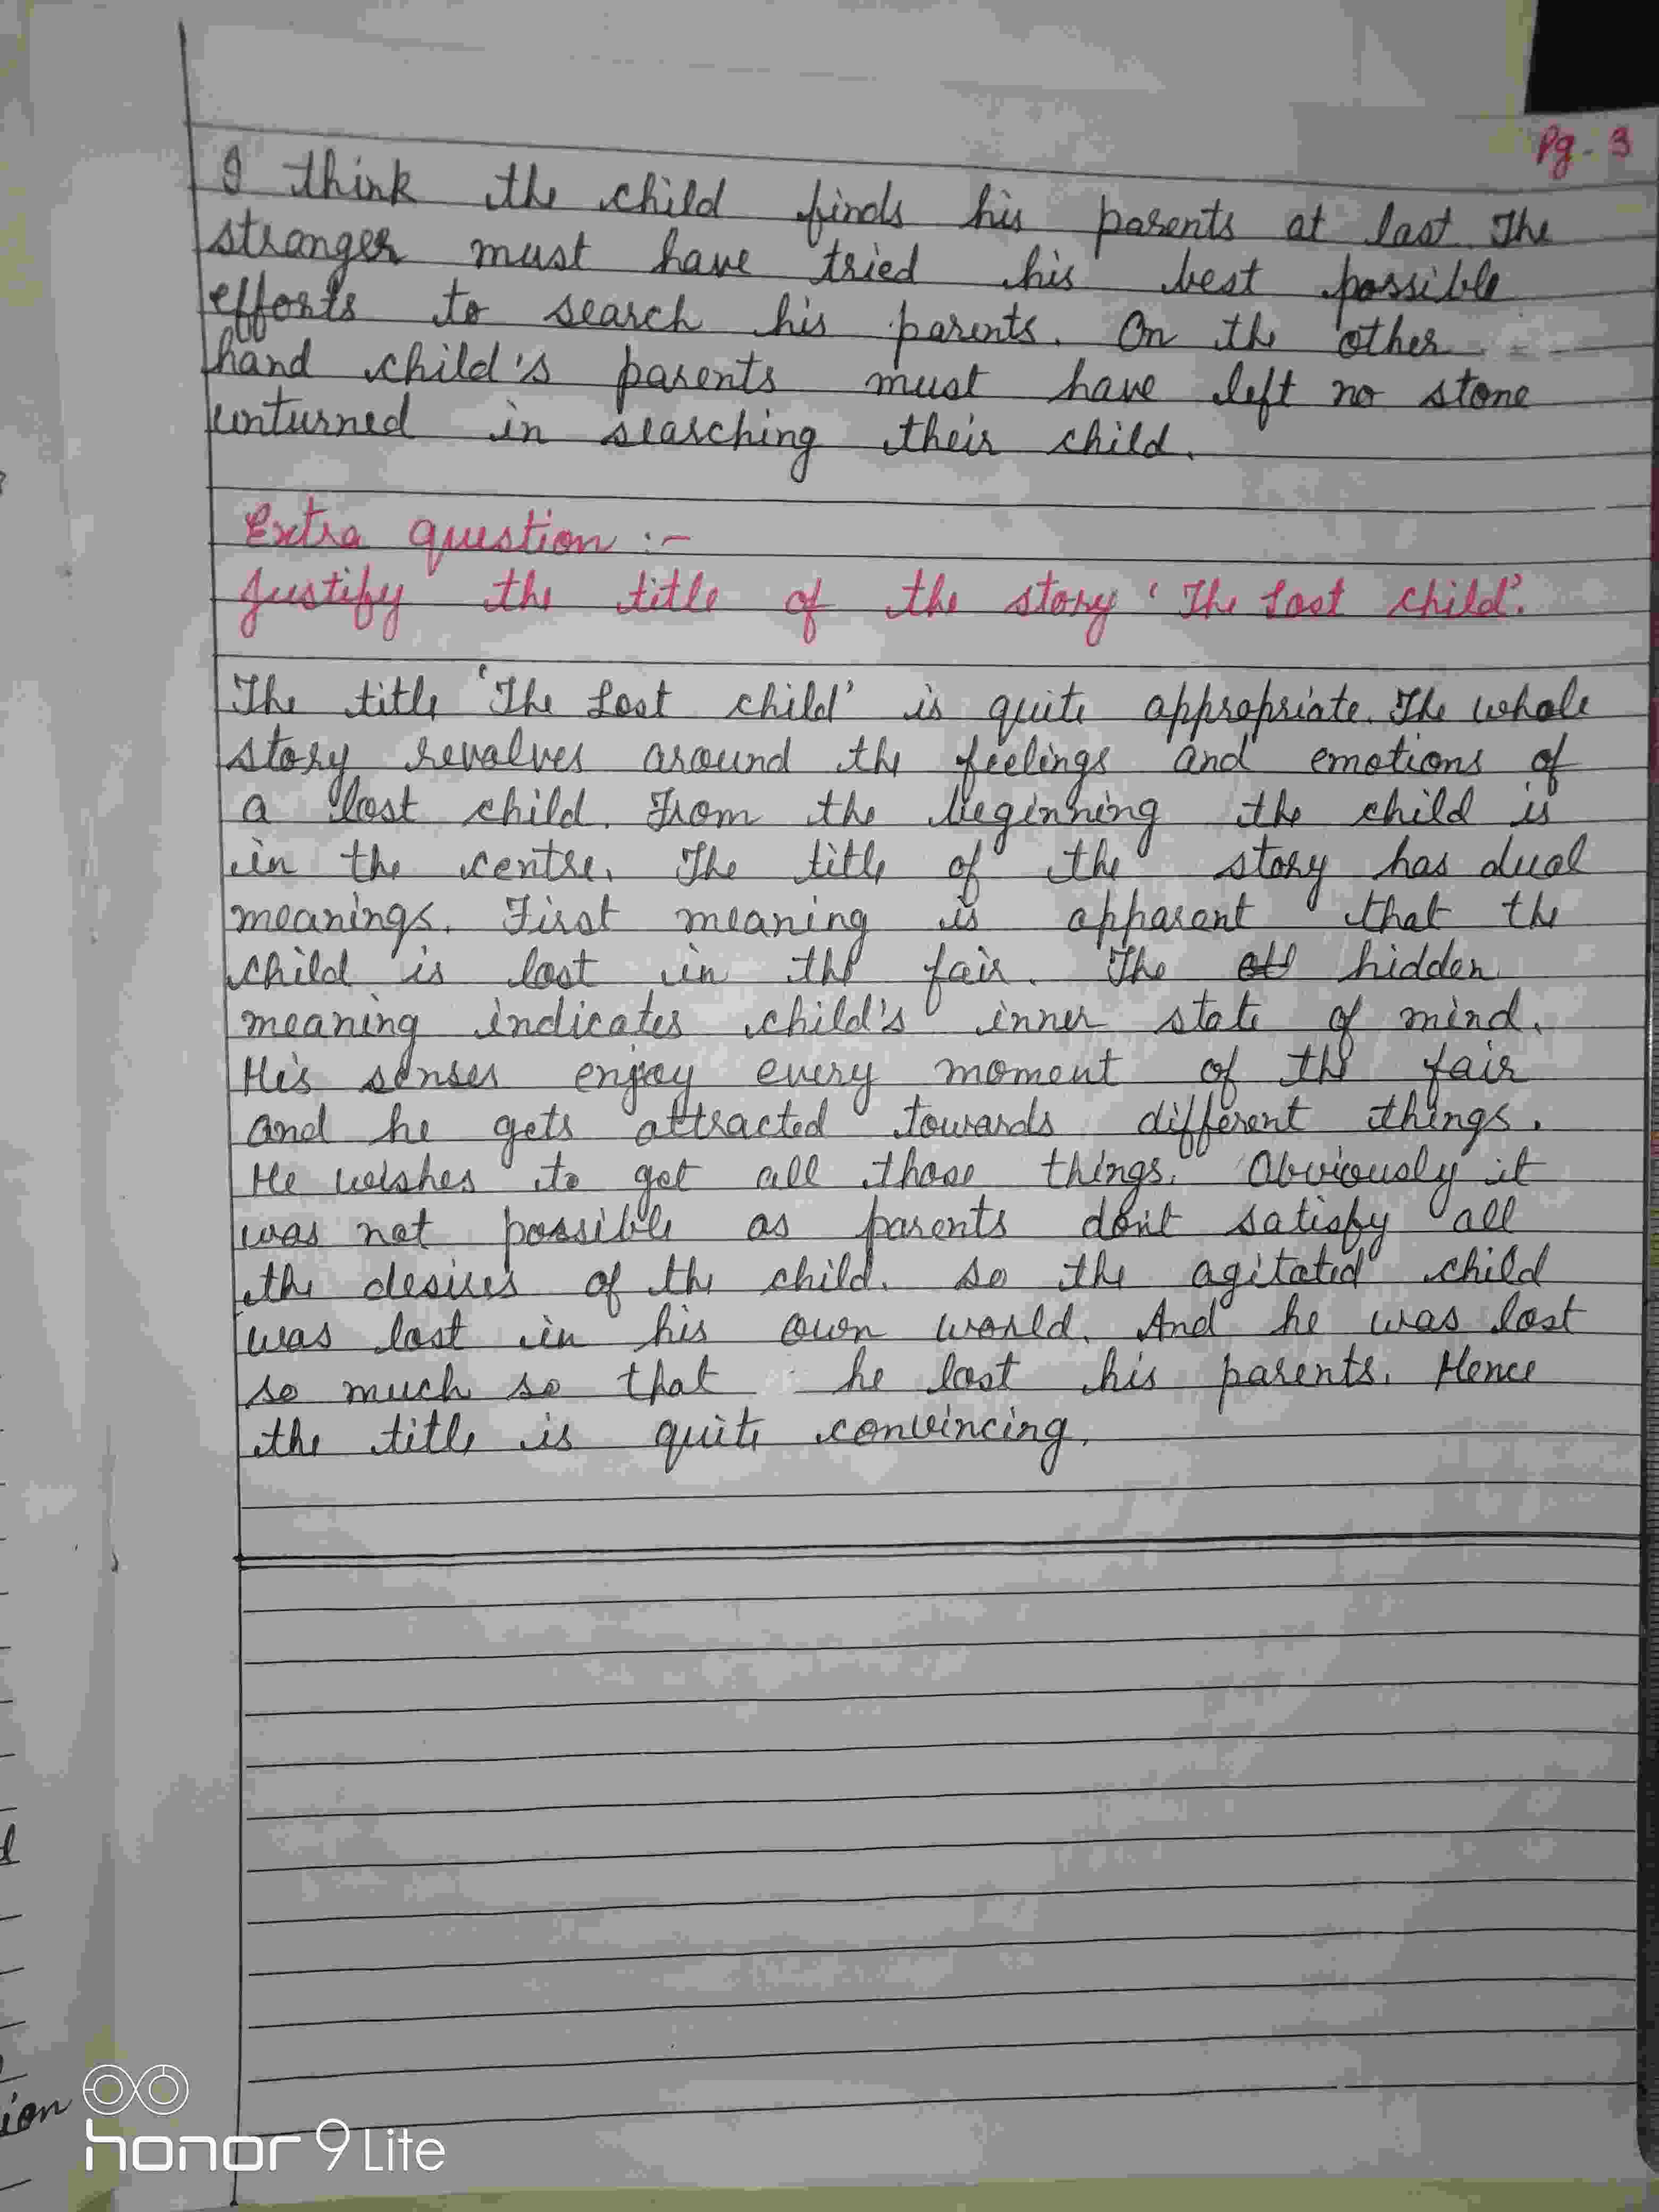 Pg - 3
I think the child finds his parents at last. The
stranger must have tried his best possible
efforts to search his parents. On the other
hand child's parents must have left no stone
unturned in searching their child.
Extra question :-
Justify the title of the story 'The Lost child'.
The title 'The Lost child' is quite appropriate. The whole
story revolves around the feelings and emotions of
a lost child. From the beginning the child is
in the centre. The title of the story has dual
meanings. First meaning is apparent that the
child is lost in the fair. The hidden
meaning indicates child's inner state of mind.
His senses enjoy every moment of the fair
and he gets attracted towards different things.
He wishes to get all those things. Obviously it
was not possible as parents don't satisfy all
the desires of the child. So the agitated child
was lost in his own world. And he was lost
so much so that he lost his parents. Hence
the title is quite convincing.
ion
honor 9 Lite